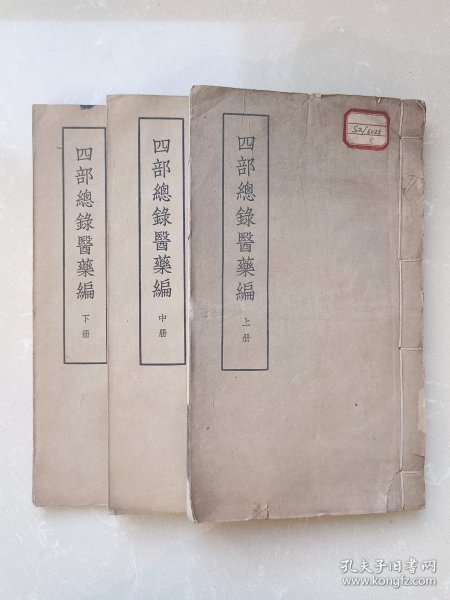 四部總錄醫藥編
上册
四部總錄醫藥編
中册
四部總錄醫藥編
下册
52/6028
孔夫子旧书网
www.kongfz.com